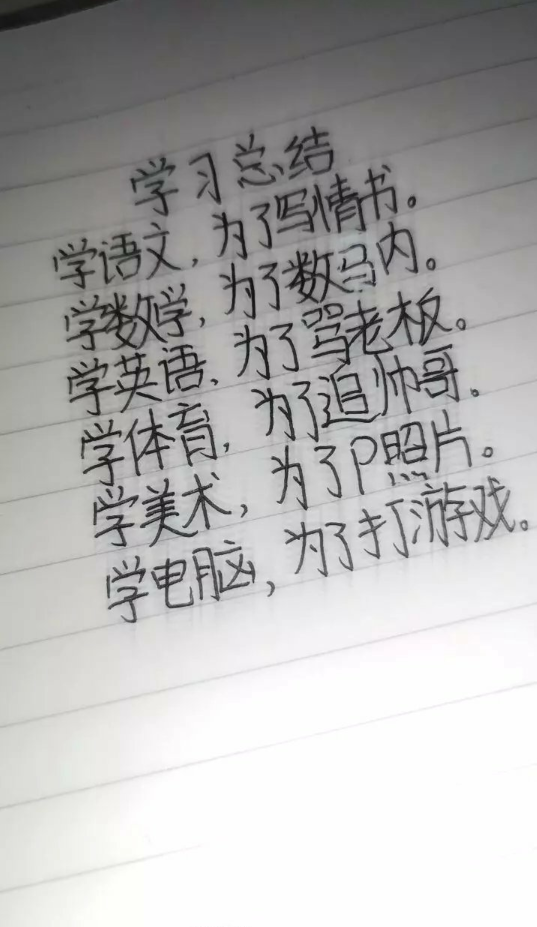 学习总结
学语文，为了写情书。
学数学，为了数马内。
学英语，为了骂老板。
学体育，为了追帅哥。
学美术，为了P照片。
学电脑，为了打游戏。